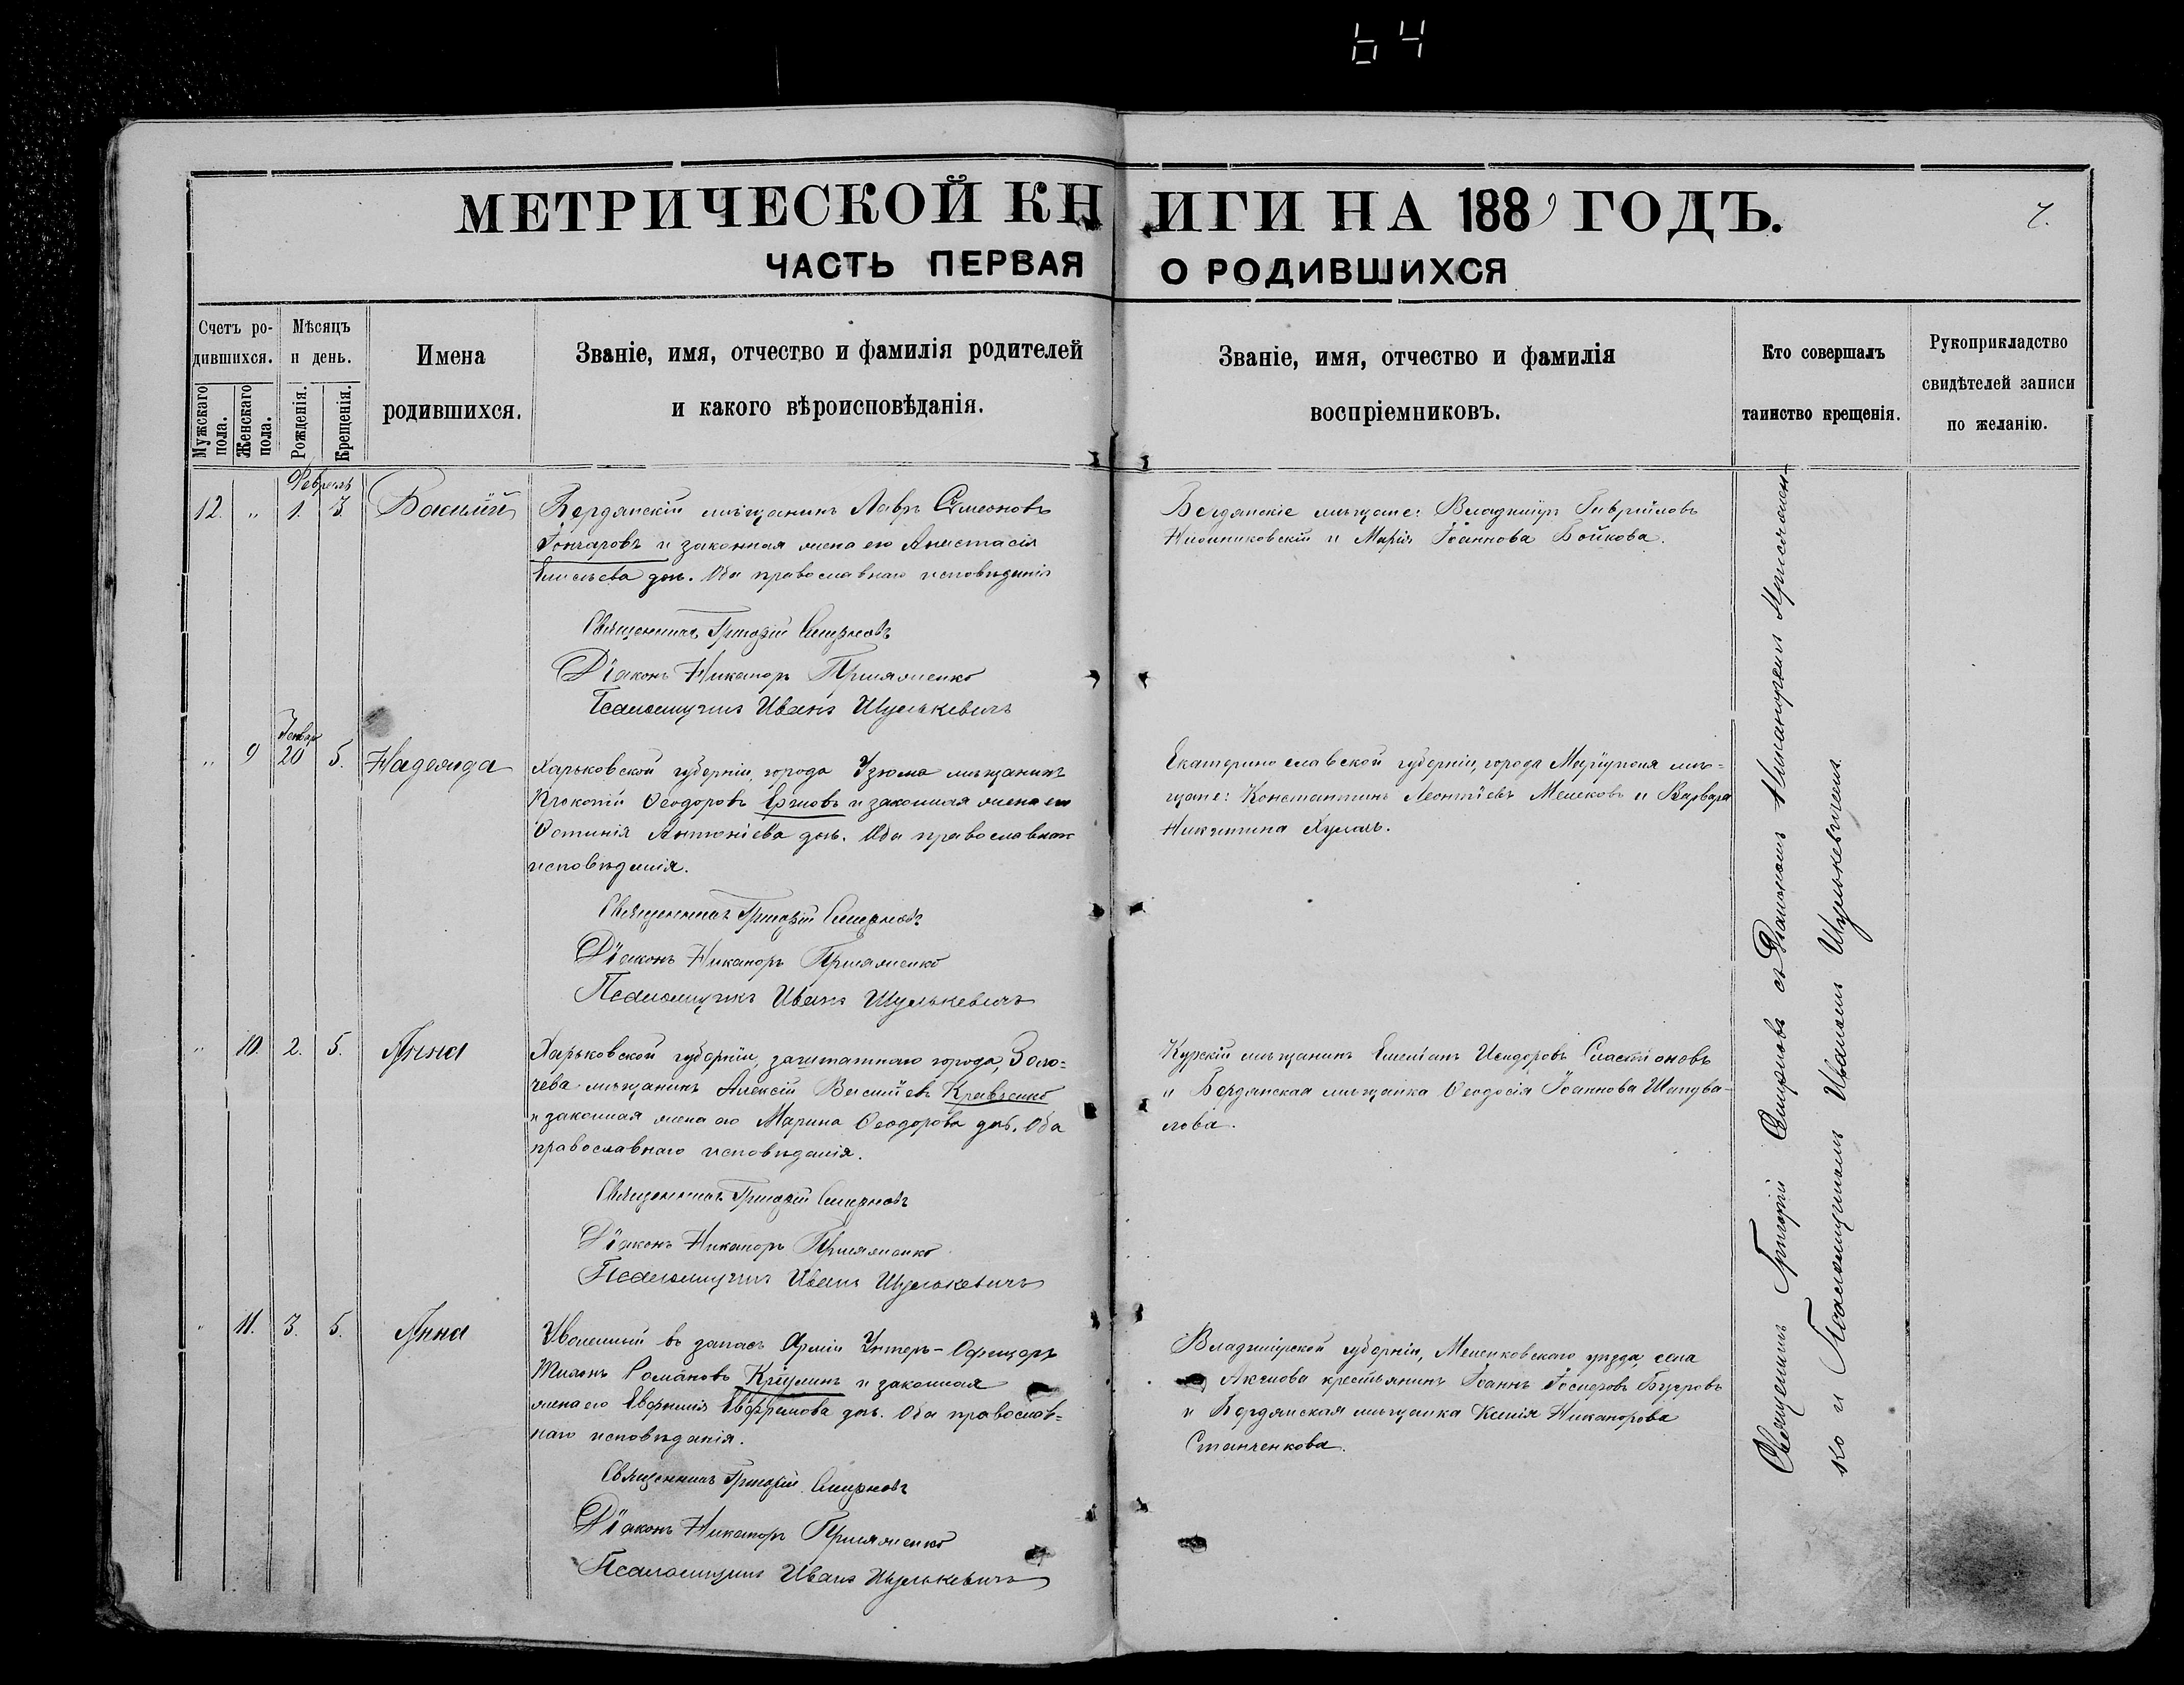 64
МЕТРИЧЕСКОЙ КНИГИ НА 1889 ГОДЪ.
7.
ЧАСТЬ ПЕРВАЯ О РОДИВШИХСЯ
Счетъ ро-
дившихся.
Мужскаго пола.
Женскаго пола.
Мѣсяцъ
и день.
Рожденія.
Крещенія.
Имена
родившихся.
Званіе, имя, отчество и фамилія родителей
и какого вѣроисповѣданія.
Званіе, имя, отчество и фамилія
воспріемниковъ.
Кто совершалъ
таинство крещенія.
Рукоприкладство
свидѣтелей записи
по желанію.
Февраль
12. „ 1. 3. Василій
Бердянскій мѣщанинъ Лавръ Симеоновъ
Гончаровъ и законная жена его Анастасія
Елисѣева дочь. Оба православнаго исповѣданія
Священникъ Григорій Смирновъ
Діаконъ Никаноръ
Псаломщикъ Иванъ Шулькевичъ
Бердянскіе мѣщане: Владиміръ Гавриловъ
и Марія Іоаннова Бойкова.
Январ
„ 9 20 5. Надежда
Харьковской губерніи, города Изюма мѣщанинъ
Прокопій Ѳеодоровъ и законная жена его
Устинія Антоніева дочь. Оба православнаго
исповѣданія.
Священникъ Григорій Смирновъ
Діаконъ Никаноръ
Псаломщикъ Иванъ Шулькевичъ
Екатеринославской губерніи, города Маріуполя мѣ=
щане: Константинъ Леонтіевъ и Варвара
Никитина
„ 10. 2. 5. Анна
Харьковской губерніи заштатнаго города, Золо=
чева мѣщанинъ Алексій Василіевъ Кравченко
и законная жена его Марина Ѳеодорова дочь. Оба
православнаго исповѣданія.
Священникъ Григорій Смирновъ
Діаконъ Никаноръ
Псаломщикъ Иванъ Шулькевичъ
Курскій мѣщанинъ Исидоровъ
и Бердянская мѣщанка Ѳеодосія Іоаннова Шапова-
лова.
„ 11. 3. 5. Анна
Уволенный въ запасъ Арміи Унтеръ-Офицеръ
Романовъ и законная
жена его Евфимія Ефремова дочь. Оба православ=
наго исповѣданія.
Священникъ Григорій Смирновъ
Діаконъ Никаноръ
Псаломщикъ Иванъ Шулькевичъ
Владимірской губерніи, Меленковскаго уѣзда, села
крестьянинъ Іоаннъ Іосифовъ
и Бердянская мѣщанка Ксенія Никанорова
Станченкова.
Священникъ Григорій Смирновъ съ Діакономъ Никаноромъ
ко и Псаломщикомъ Иваномъ Шулькевичемъ.